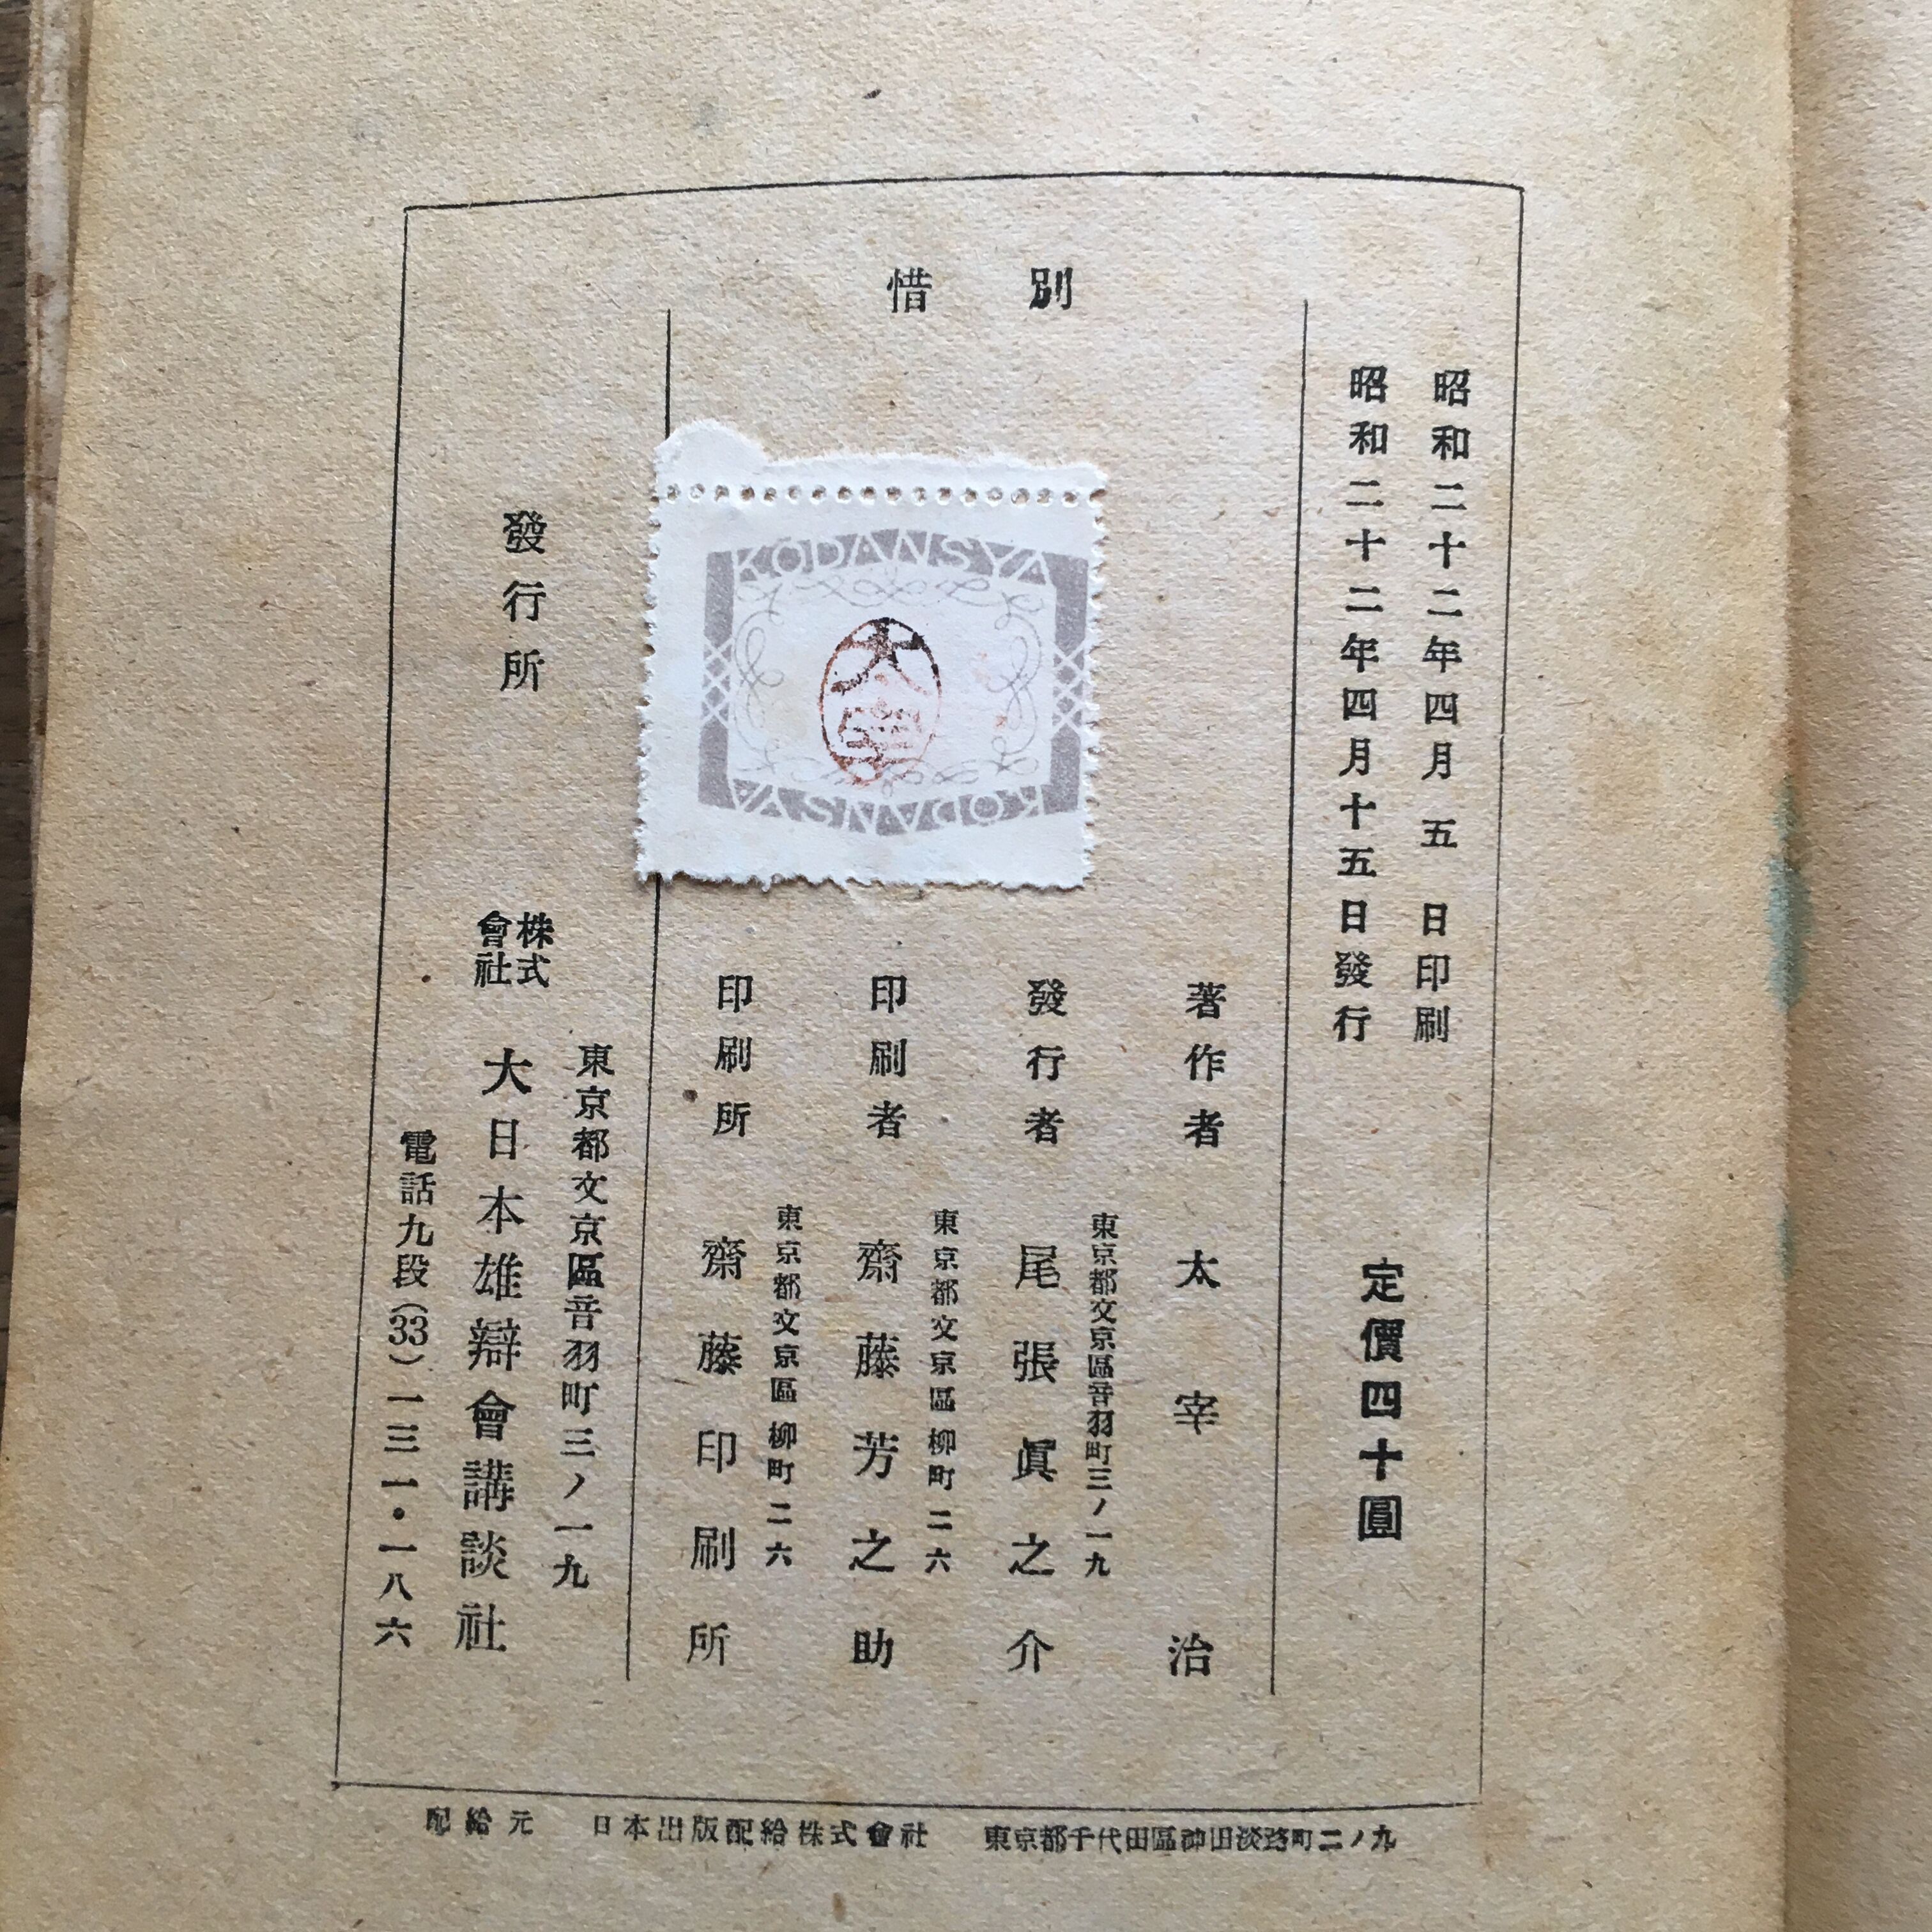 惜別
昭和二十二年四月五日印刷
昭和二十二年四月十五日發行
定價四十圓
著作者 太宰治
東京都文京區音羽町三ノ一九
發行者 尾張眞之介
東京都文京區柳町二六
印刷者 齋藤芳之助
東京都文京區柳町二六
印刷所 齋藤印刷所
KODANSYA
太宰
KODANSYA
東京都文京區音羽町三ノ一九
發行所 株式會社 大日本雄辯會講談社
電話九段(33)一三一・一八六
配給元 日本出版配給株式會社 東京都千代田區神田淡路町二ノ九